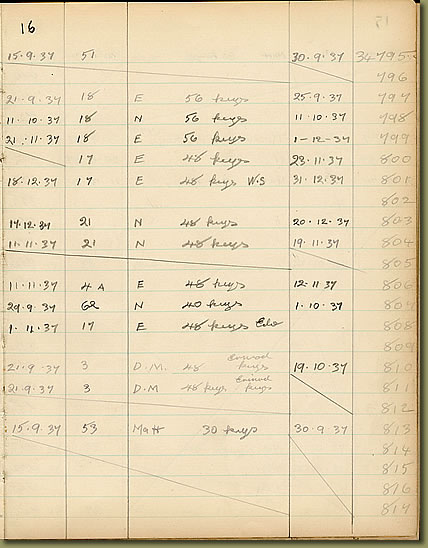 16
15.9.37 51 30.9.37 34795
796
21.9.37 18 E 56 keys 25.9.37 797
11.10.37 18 N 56 keys 11.10.37 798
21.11.37 18 E 56 keys 1-12-37 799
17 E 48 keys 23.11.37 800
18.12.37 17 E 48 keys W.S 31.12.37 801
802
17.12.37 21 N 48 keys 20.12.37 803
11.11.37 21 N 48 keys 19.11.37 804
805
11.11.37 4A E 48 keys 12.11.37 806
29.9.37 62 N 40 keys 1.10.37 807
1.11.37 17 E 48 keys 808
809
21.9.37 3 D.M. 48 keys 19.10.37 810
21.9.37 3 D.M 48 keys keys 811
812
15.9.37 53 Matt 30 keys 30.9.37 813
814
815
816
817